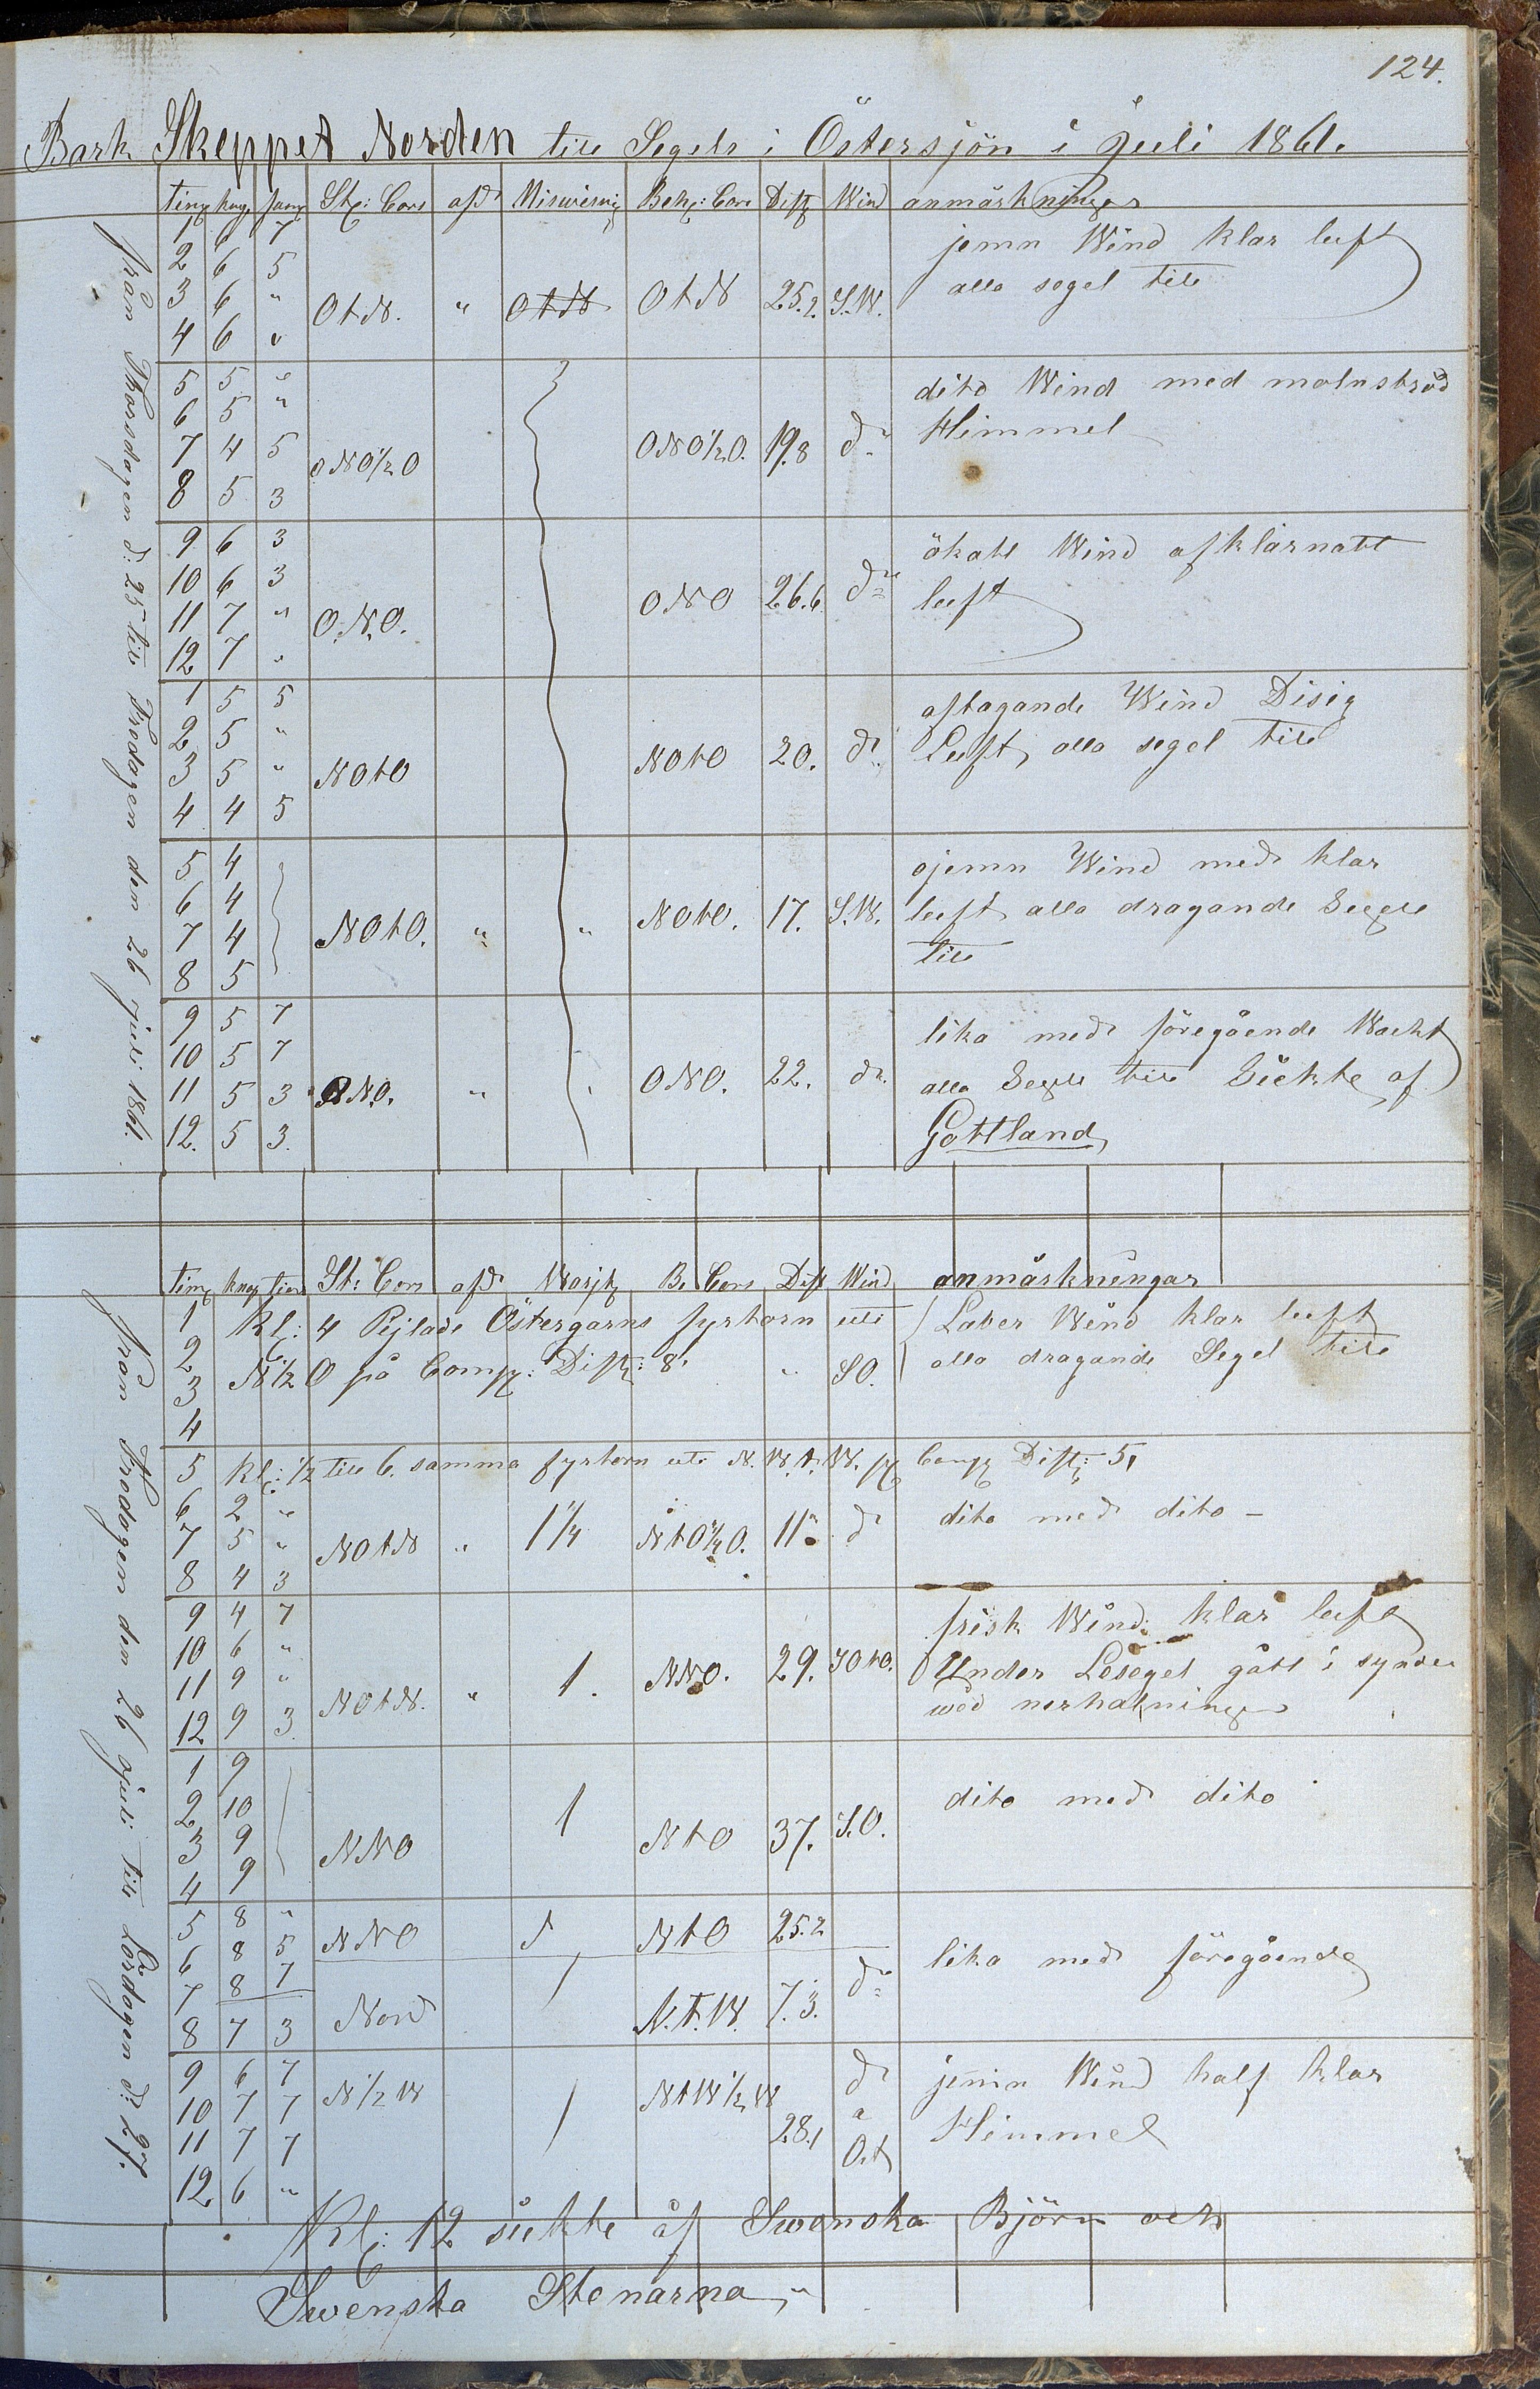 124.
Bark Skeppet Norden till Segels i Östersjön i Juli 1861.
tim knop fam St: Cors afd Miswisnig Beh: Cors Dist Wind anmärkninger
från Thorsdagen d: 25 till Fredagen den 26 juli 1861.
1 6 7 jemn Wind klar luft
2 6 5 alla segel till
3 6 " OtN. " OtN OtN 25.2. S.W.
4 6 "
5 5 " dito Wind med molnströd
6 5 " Himmel
7 4 5 ONO½O ONO½O. 19.8 do
8 5 3
9 6 3 ökatt Wind afklarnatt
10 6 3 luft
11 7 " O.N.O. ONO 26.6 do
12 7 "
1 5 5 aftagande Wind Disig
2 5 " Luft, alla segel till
3 5 " NOtO NOtO 20. do
4 4 5
5 4 ojemn Wind med klar
6 4 luft alla dragande Segel
7 4 NOtO. " " NOtO. 17. S.W. till
8 5
9 5 7 lika med föregående Wackt
10 5 7 alla Segel till Sickte af
11 5 3 ONO. " " ONO. 22. do Gottland
12. 5 3.
tim knop St: Cors afd B. Cors Dist Wind anmärkningar
från Fredagen den 26 juli till Lördagen d: 27.
1 kl: 4 Pejlade Östergarns fyrtorn uti Laber Wind klar luft
2 N½O på Comp: Dist: 8' " SO. alla dragande Segel till
3
4
5 kl: ½ till 6. samma fyrtorn uti N.W.t.W. p Comp Dist: 5,
6 2 " dito med dito -
7 5 " NOtN " 1¼ 11" do
8 4 3
9 4 7 frisk Wind klar luft
10 6 " Under Lesegel gått i synder
11 9 " NOtN. " 1. NNO. 29. SOtO. wid nerhalning
12 9 3.
1 9 dito med dito
2 10
3 9 NNO 1 NtO 37. S.O.
4 9
5 8 " NNO 1 NtO 25.2
6 8 5 lika med föregående
7 8 7
8 7 3 Nord 1 N.t.W. 7.3. do
9 6 7 N½W NtW½W do jemn Wind half klar
10 7 7 1 28.1 a Himmel
11 7 7 O.t
12. 6 "
Kl: 12 sickte af Swenska Björn och
Swenska Stenarna,"